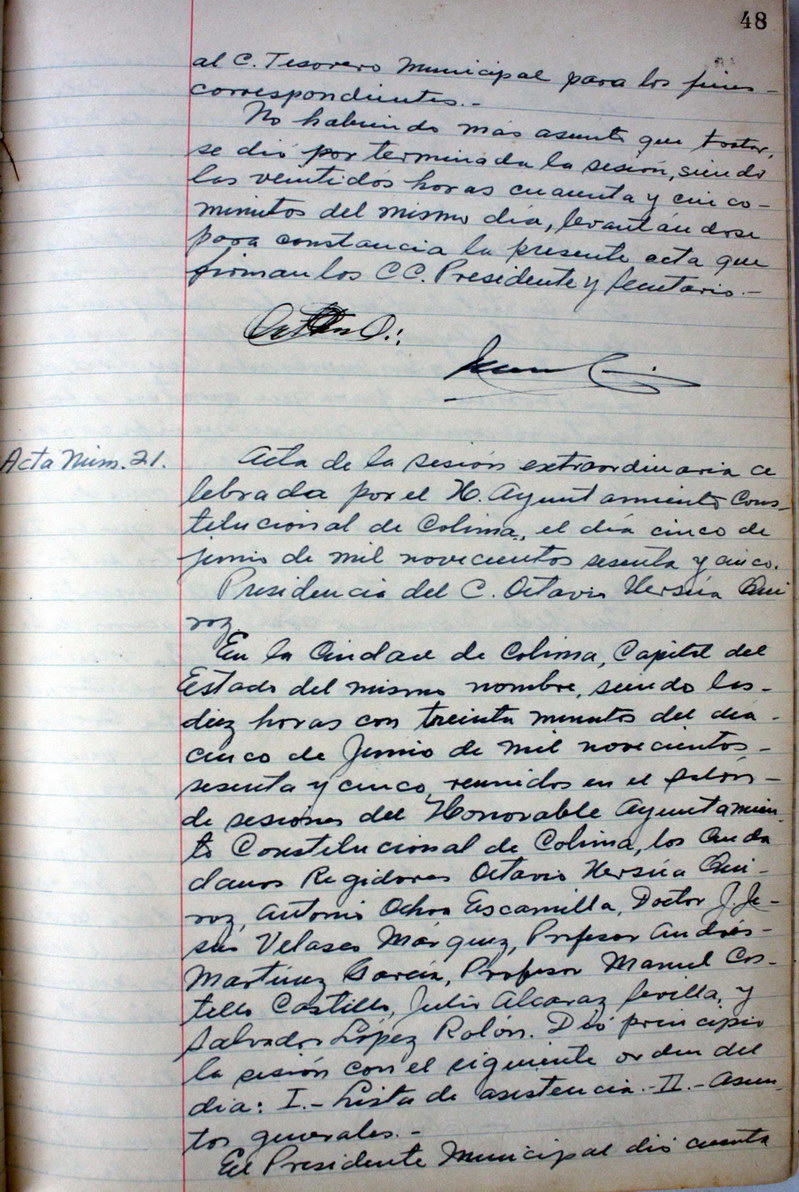 48
al C. Tesorero Municipal para los fines -
correspondientes.-
No habiendo más asunto que tratar,
se dió por terminada la sesión, siendo
las veintidós horas cuarenta y cinco -
minutos del mismo día, levantándose
para constancia la presente acta que
firman los C C. Presidente y Secretario.-
Acta Núm. 21.
Acta de la sesión extraordinaria ce
lebrada por el H. Ayuntamiento Cons-
titucional de Colima, el día cinco de
junio de mil novecientos sesenta y cinco.
Presidencia del C. Octavio Ursúa Qui
roz.
En la Ciudad de Colima, Capital del
Estado del mismo nombre, siendo las -
diez horas con treinta minutos del día -
cinco de Junio de mil novecientos -
sesenta y cinco, reunidos en el salón -
de sesiones del Honorable Ayuntamien-
to Constitucional de Colima, los Ciuda
danos Regidores Octavio Ursúa Qui-
roz, Antonio Ochoa Escamilla, Doctor J. Je-
sús Velasco Márquez, Profesor Andrés -
Martínez García, Profesor Manuel Cos-
tello Castillo, Julio Alcaraz Sevilla, y
Salvador López Rolón. Dió principio
la sesión con el siguiente orden del
día: I.- Lista de asistencia.- II.- Asun-
tos generales.-
El Presidente Municipal dió cuenta